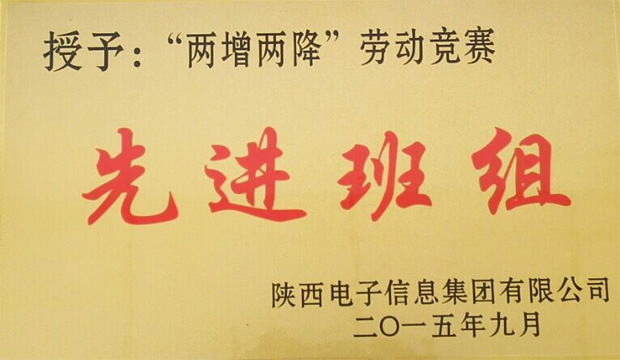 授予：“两增两降”劳动竞赛
先进班组
陕西电子信息集团有限公司
二〇一五年九月